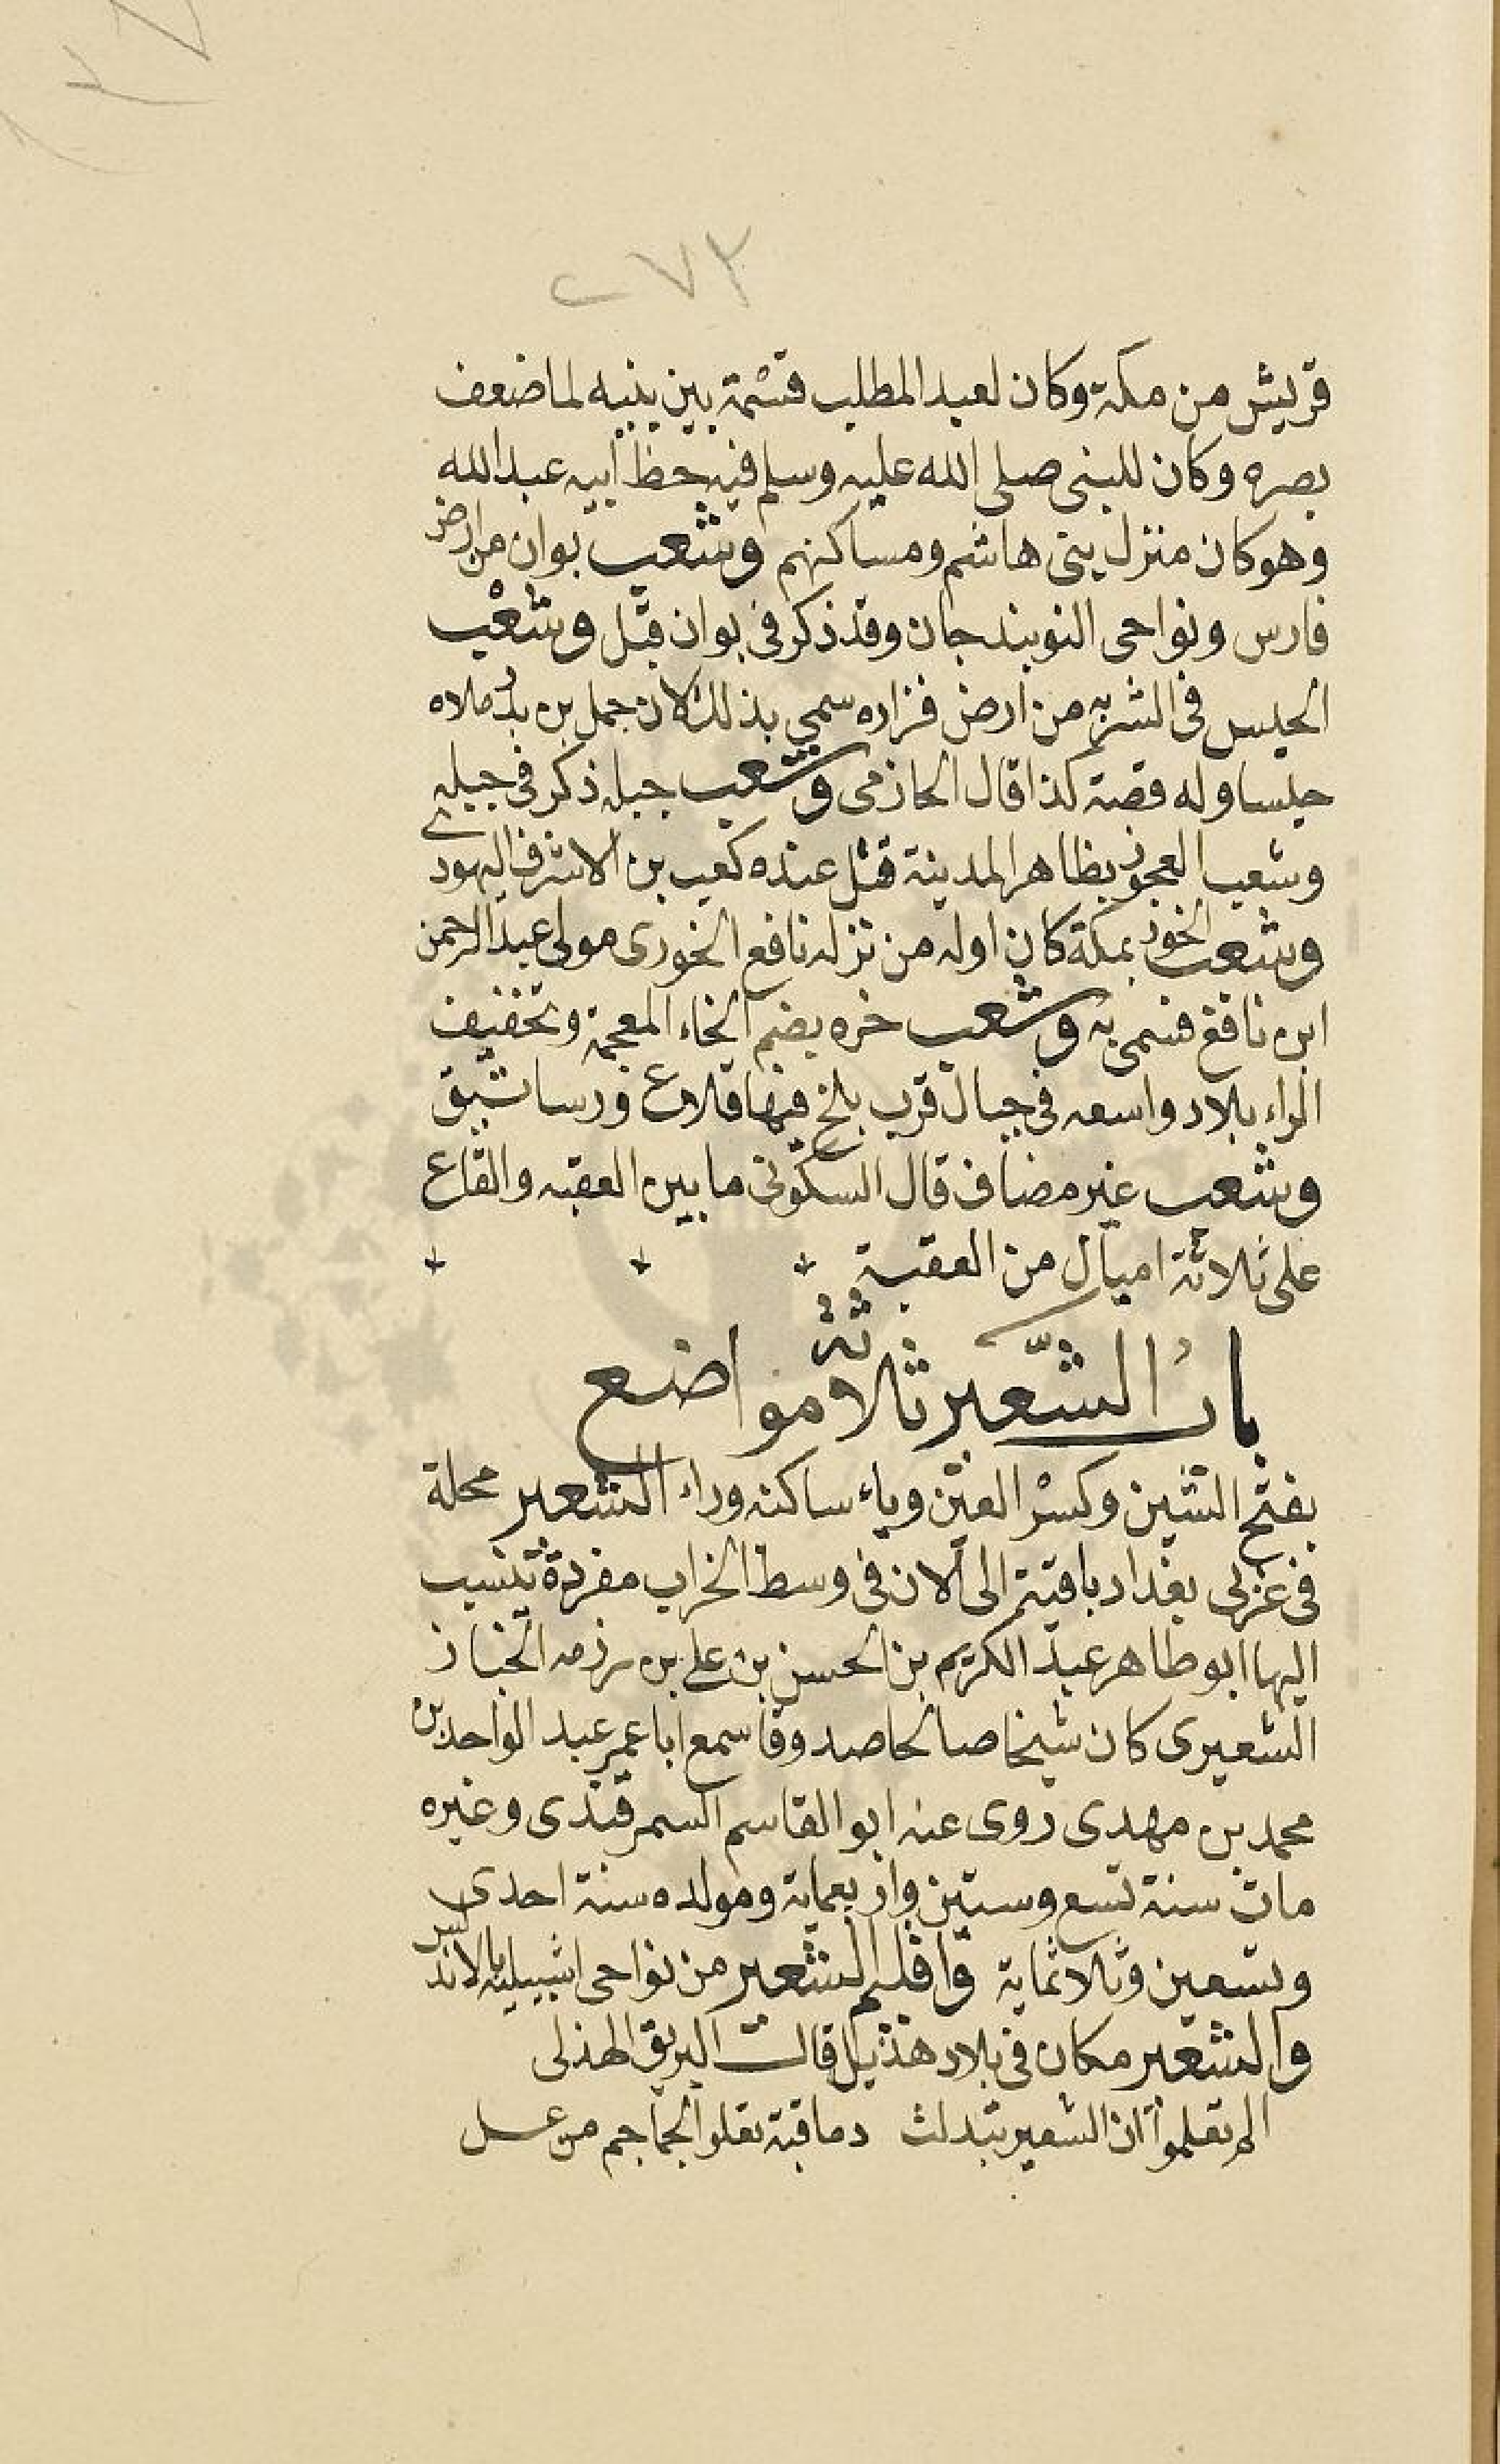 ٢٧٣
قريش من مكة وكان لعبد المطلب قسْمة بين بنيه لما ضعف
بصره وكان للبنى صلى الله عليه وسلم فيه حظ ابيه عبد الله
وهو كان منزل بنى هاشم ومساكنهم وشعب بوان من ارض
فارس ونواحى النوبندجان وقد ذكر فى بوان قبل وشعْب
الحيس فى الشربه من ارض فزاره سمي بذلك لان حمل بن بدر ملاه
حيسا وله قصة كذا قال الحازمى وشعب جبله ذكر فى جبله
وشعب العجوز بظاهر المدينة قتل عنده كعب بن الاشرف اليهودى
وشعب الخوز بمكة كان اوله من نزله نافع الخوزى مولى عبد الرحمن
ابن نافع فسمى به وشعب خره بضم الخاء المعجمة وتخفيف
الراء بلاد واسعه فى جبال قرب بلخ فيها قلاع ورساتيق
وشعب غير مضاف قال السكونى ما بين العقبه والقاع
على ثلاثة اميال من العقبة
باب الشّعير ثلاثة مواضع
بفتح الشين وكسْر العين وياء ساكنه وراء الشعير محلة
فى غربى بغداد باقية الى الان فى وسط الخراب مفردة ينسب
اليها ابو طاهر عبد الكريم بن الحسن بن على بن رزمه الخباز
الشعيرى كان شيخا صالحا صدوقا سمع ابا عمر عبد الواحد بن
محمد بن مهدى روى عنه ابو القاسم السمرقندى وغيره
مات سنة تسع وستين واربعماية ومولده سنة احدى
وتسعين وثلاثماية واقليم الشعير من نواحى اشبيلية بالاندلس
والشعير مكان فى بلاد هذيل قالت البريق الهذلى
الم تعلموا ان الشعير تبدلث دماقبة تعلو الجماجم من عل